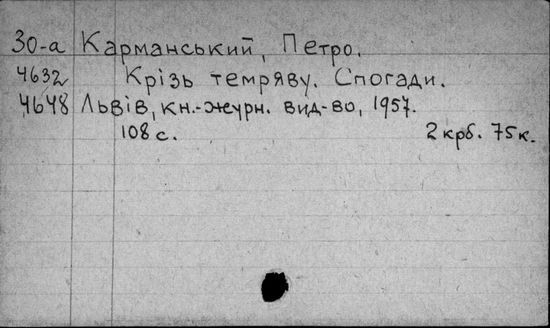 30-а Карманський, Петро.
4632 Крізь темряву. Спогади.
4648 Львів, кн.-журн. вид-во, 1957.
108 с. 2 крб. 75 к.